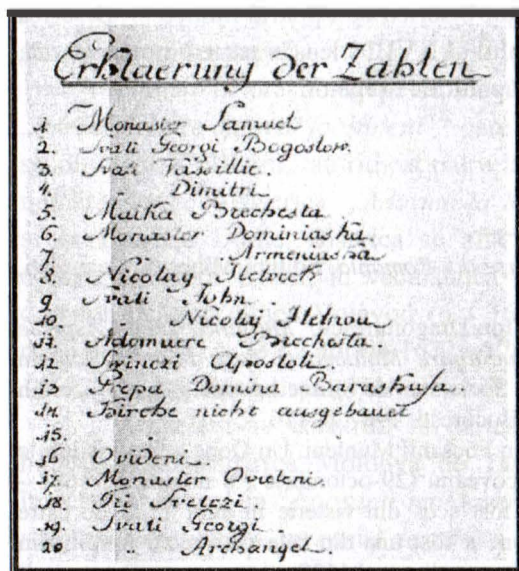 Erklaerung der Zahlen
1. Monaster Samuel
2. Svati Georgi Bogoslow.
3. Svati Vassillie.
4. Dimitri.
5. Maika Brechesta.
6. Monaster Dominiaska
7. Armeniaska
8. Nicolay
9. Svati John.
10. Nicolaj
11. Adormire Brechesta.
12. Apostoli.
13. Prepa Domina
14. Kirche nicht ausgebauet
15.
16. Ovideni.
17. Monaster Ovideni.
18.
19. Svati Georgi.
20. " Archangel.